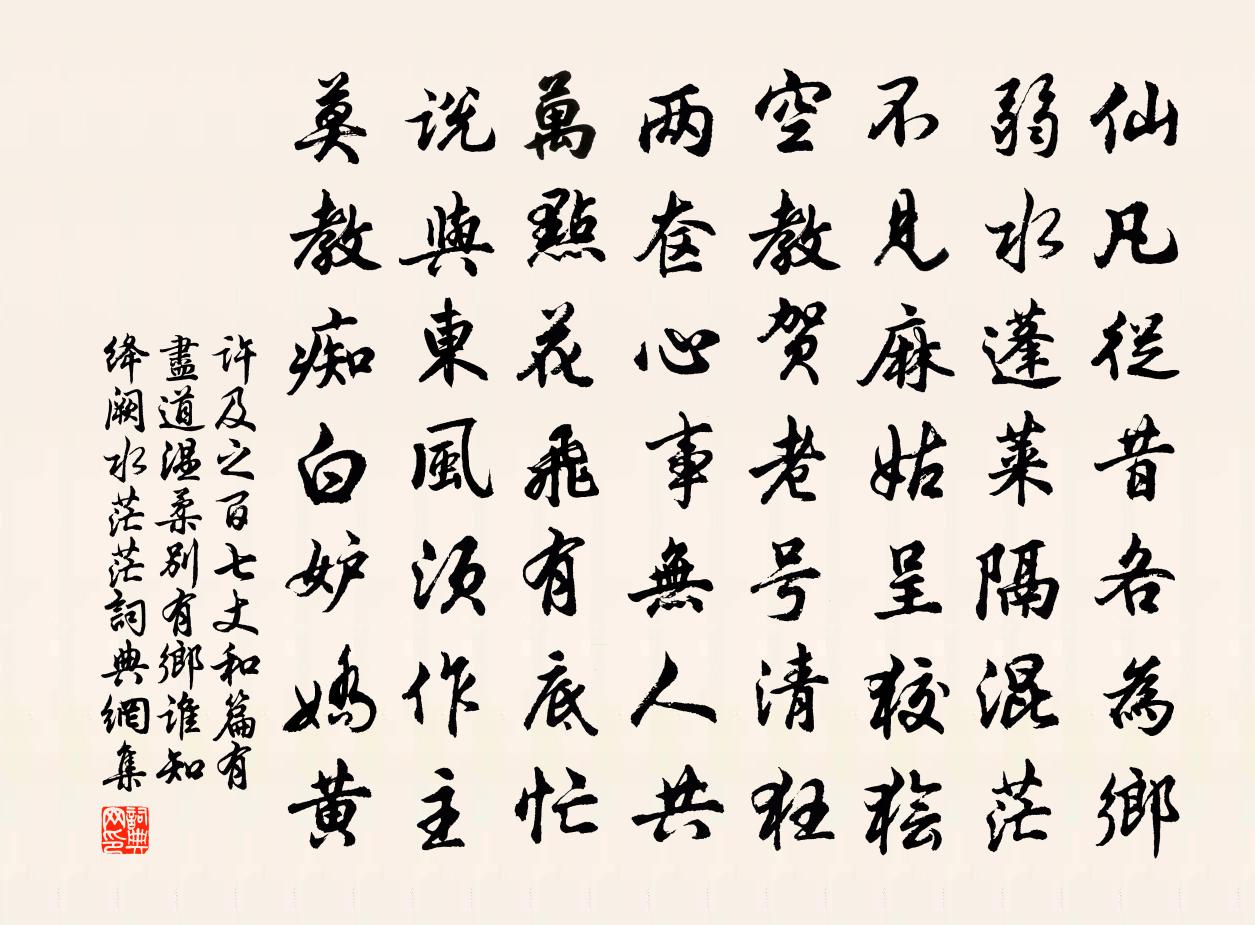 仙凡從昔各為鄉
弱水蓬萊隔混茫
不見麻姑呈狡獪
空教贺老号清狂
两奁心事無人共
萬點花飛有底忙
说與東風須作主
莫教痴白妒嬌黄
许及之百七丈和篇有
盡道温柔别有鄉谁知
绛阙水茫茫詞典網集
詞典
网印